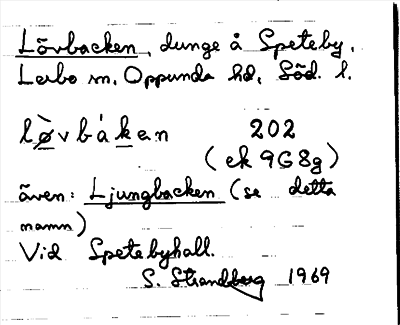 Lövbacken, dunge å Speteby,
Lerbo sn, Oppunda hd, Söd. l.
lø̀vbákan 202
(ek 9G8g)
även: Ljungbacken (se detta
namn)
Vid Spetebyhall.
S. Strandberg 1969